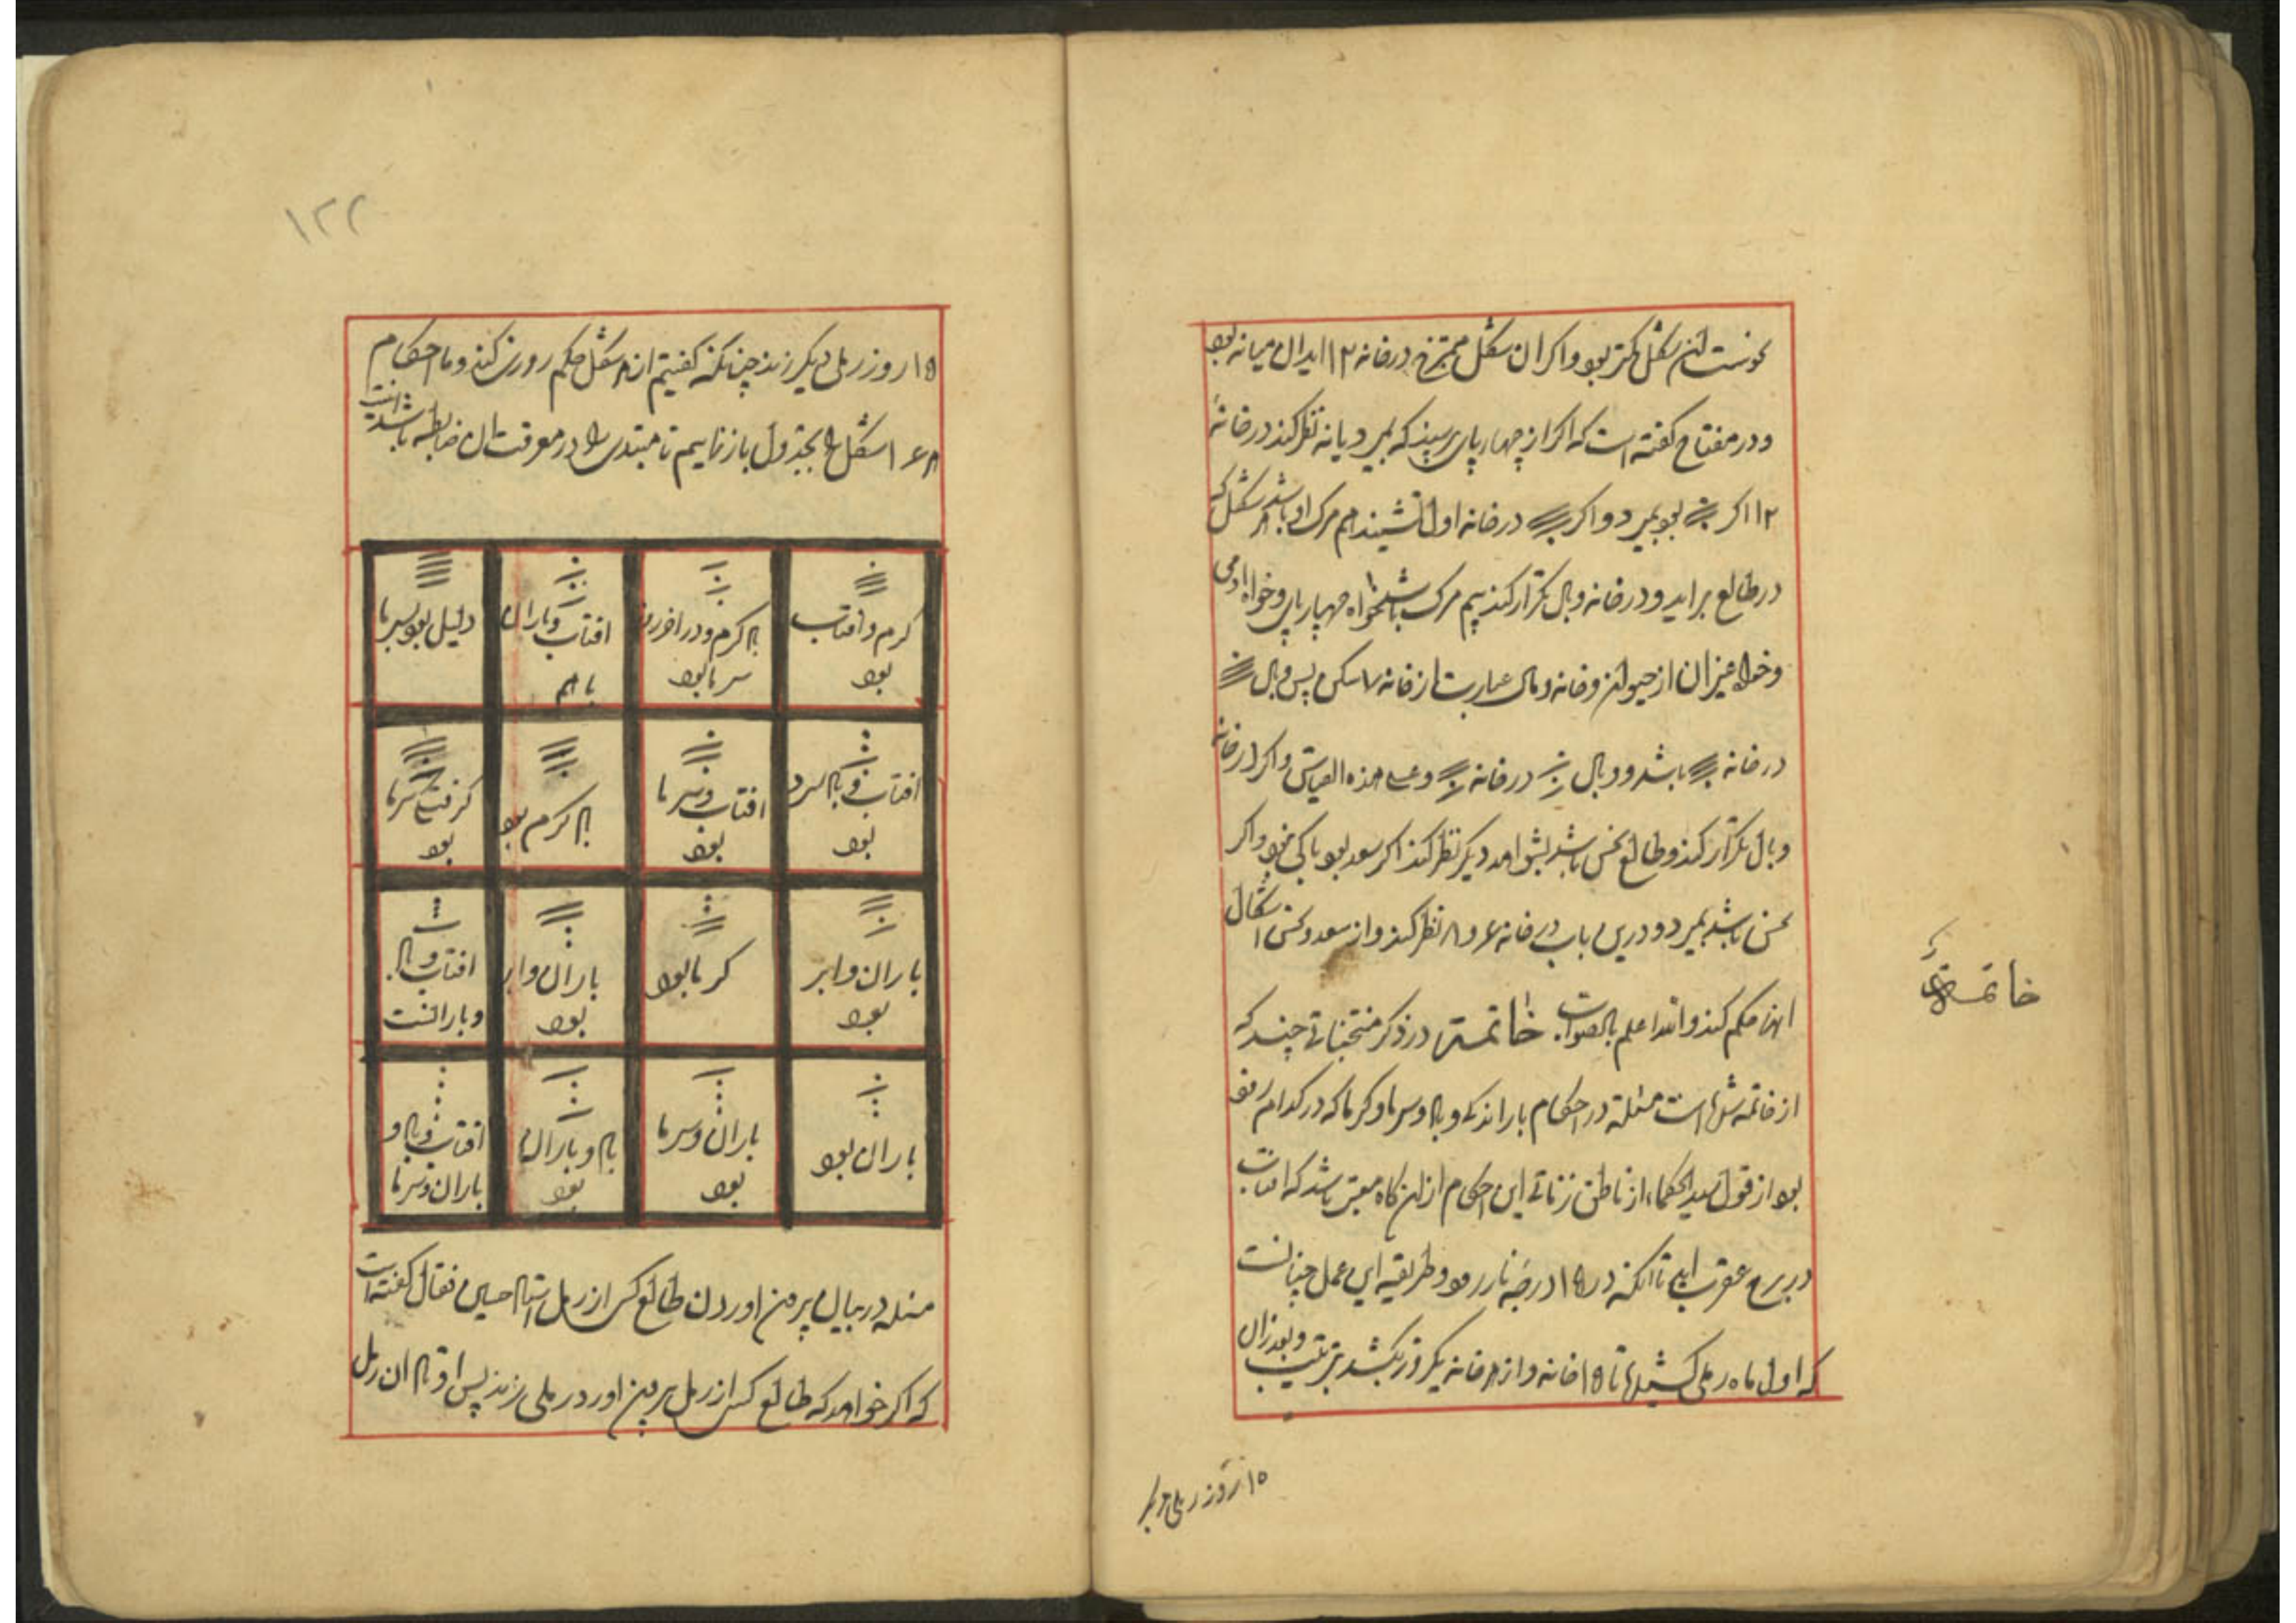 نحوست آن شکل کمتر بود و اگر آن شکل ممتزج در خانه ۱۲ اید ان میانه بود
و در مفتاح کفته است که اکر از چهار پای پرسیند که بمیرد یا نه نظر کند در خانهٔ
۱۲ اکر بود بمیرد و اکر در خانه اول نشیند هم مرک او باشد هر شکل که
در طالع براید و در خانه وبال تکرار کند بیم مرک باشد خواه چهار پای و خواه ادمی
و خواه غیر ان از حیوان و خانه وبال عبارت از خانه ۷ سکن پس وبال
در خانه باشد و وبال در خانه و علی هذه القیاس و اکر در خانه
وبال تکرار کند و طالع نحس باشد بشواهد دیکر نظر کند اکر سعد بود باکی نبود و اکر
نحس باشد بمیرد و درین باب در خانه ۶ و ۸ نظر کند و از سعد و نحس اشکال
انها حکم کند والله اعلم بالصواب خاتمة در ذکر منتخباتی چند که
خاتمة
از خاتمه است مسئلة در احکام بارندکی و باد و سرما و کرما که در کدام روز
بود از قول سید الحکما از ناطق زناتی این احکام از ان کاه معتبر باشد که افتاب
در برج عقرب اید تا انکه در ۱۵ درجه رود و طریقه این عمل چنانست
که اول ماه رملی کشیدها تا ۱۵ خانه و از هر خانه یکروز بکشد بترتیب و بعد ازان
۱۵ روز رملی دیکر
۱۲۲
۱۵ روز رملی دیکر زند چنانکه کفتیم از هر شکل حکم روزی کند و ما احکام
هر ۱۶ شکل را بجدول باز نماییم تا مبتدی را در معرفت ان ضابطه باشد اینست
کرم و افتاب بود
باد کرم و در اخر روز سرما بود
افتاب و باران باهم
دلیل بود بسرما
افتاب و باد سرد بود
افتاب و سرما بود
باد کرم بود
کرفت سرما بود
باران و ابر بود
کرما بود
باران و ابر بود
افتاب و باد و بارانست
باران بود
باران و سرما بود
باد و باران بود
افتاب و باد و باران و سرما
مسله در بیان بیرون اوردن طالع کس از رمل استاد حسین قفال کفته است
که اکر خواهد که طالع کس از رمل بیرون اورد رملی بزند پس اوتاد ان رمل